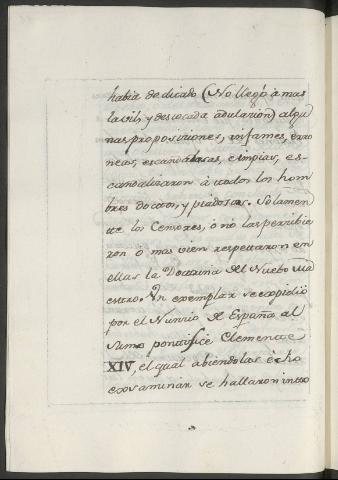 habia dedicado (No llegò à mas
la vil, y desvocada adulazion) algu
nas proposiziones, infames, erro
neas, escandalosas, e impias, es-
candalizaron à todos los hom
bres doctos, y piadosos. Solamen
tte los Censores, ó no las perzibie
ron ò mas vien respettaron en
ellas la Doctrina del Nuebo Ma
estro. Un exemplar se expidió
por el Nunzio de España al
Sumo pontifice Clementte
XIV, el qual abiendolas echo
exsaminar se hallaron intro